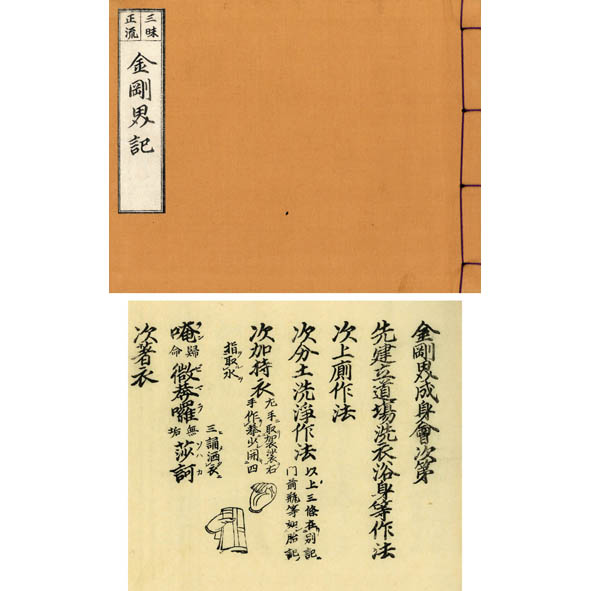 三昧
正流
金剛界記
金剛界成身會次第
先建立道場洗衣浴身等作法
次上廁作法
次分土洗淨作法
以上三條在別記
門前瓶等如胎記
次加持衣
左手取袈裟右
手作拳以用四
指取水
唵歸命微莽囉無垢莎訶
三誦洒衣
次著衣